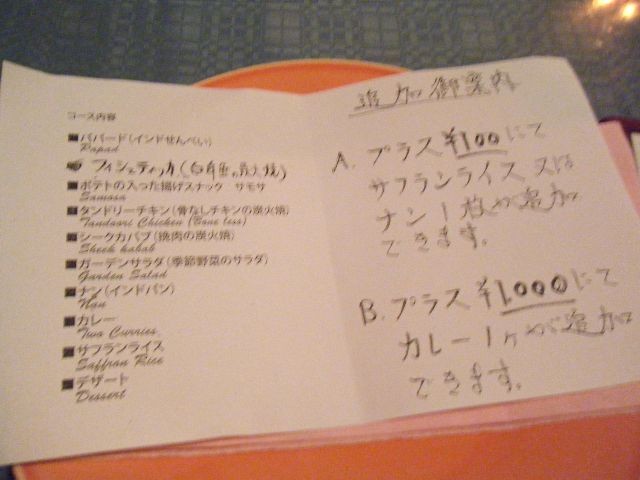 コース内容
■パパード(インドせんべい)
Papad
フィシュティッカ(白身魚の炭火焼)
■ポテトの入った揚げスナック サモサ
Samosa
■タンドリーチキン(骨なしチキンの炭火焼)
Tandoori Chicken (Bone less)
■シークカバブ(挽肉の炭火焼)
Sheek kabab
■ガーデンサラダ(季節野菜のサラダ)
Garden Salad
■ナン(インドパン)
Nan
■カレー
Two Curries
■サフランライス
Saffron Rice
■デザート
Dessert
追加御案内
A. プラス ¥100にて
サフランライス又は
ナン1枚が追加
できます。
B. プラス ¥1000にて
カレー1ケが追加
できます。